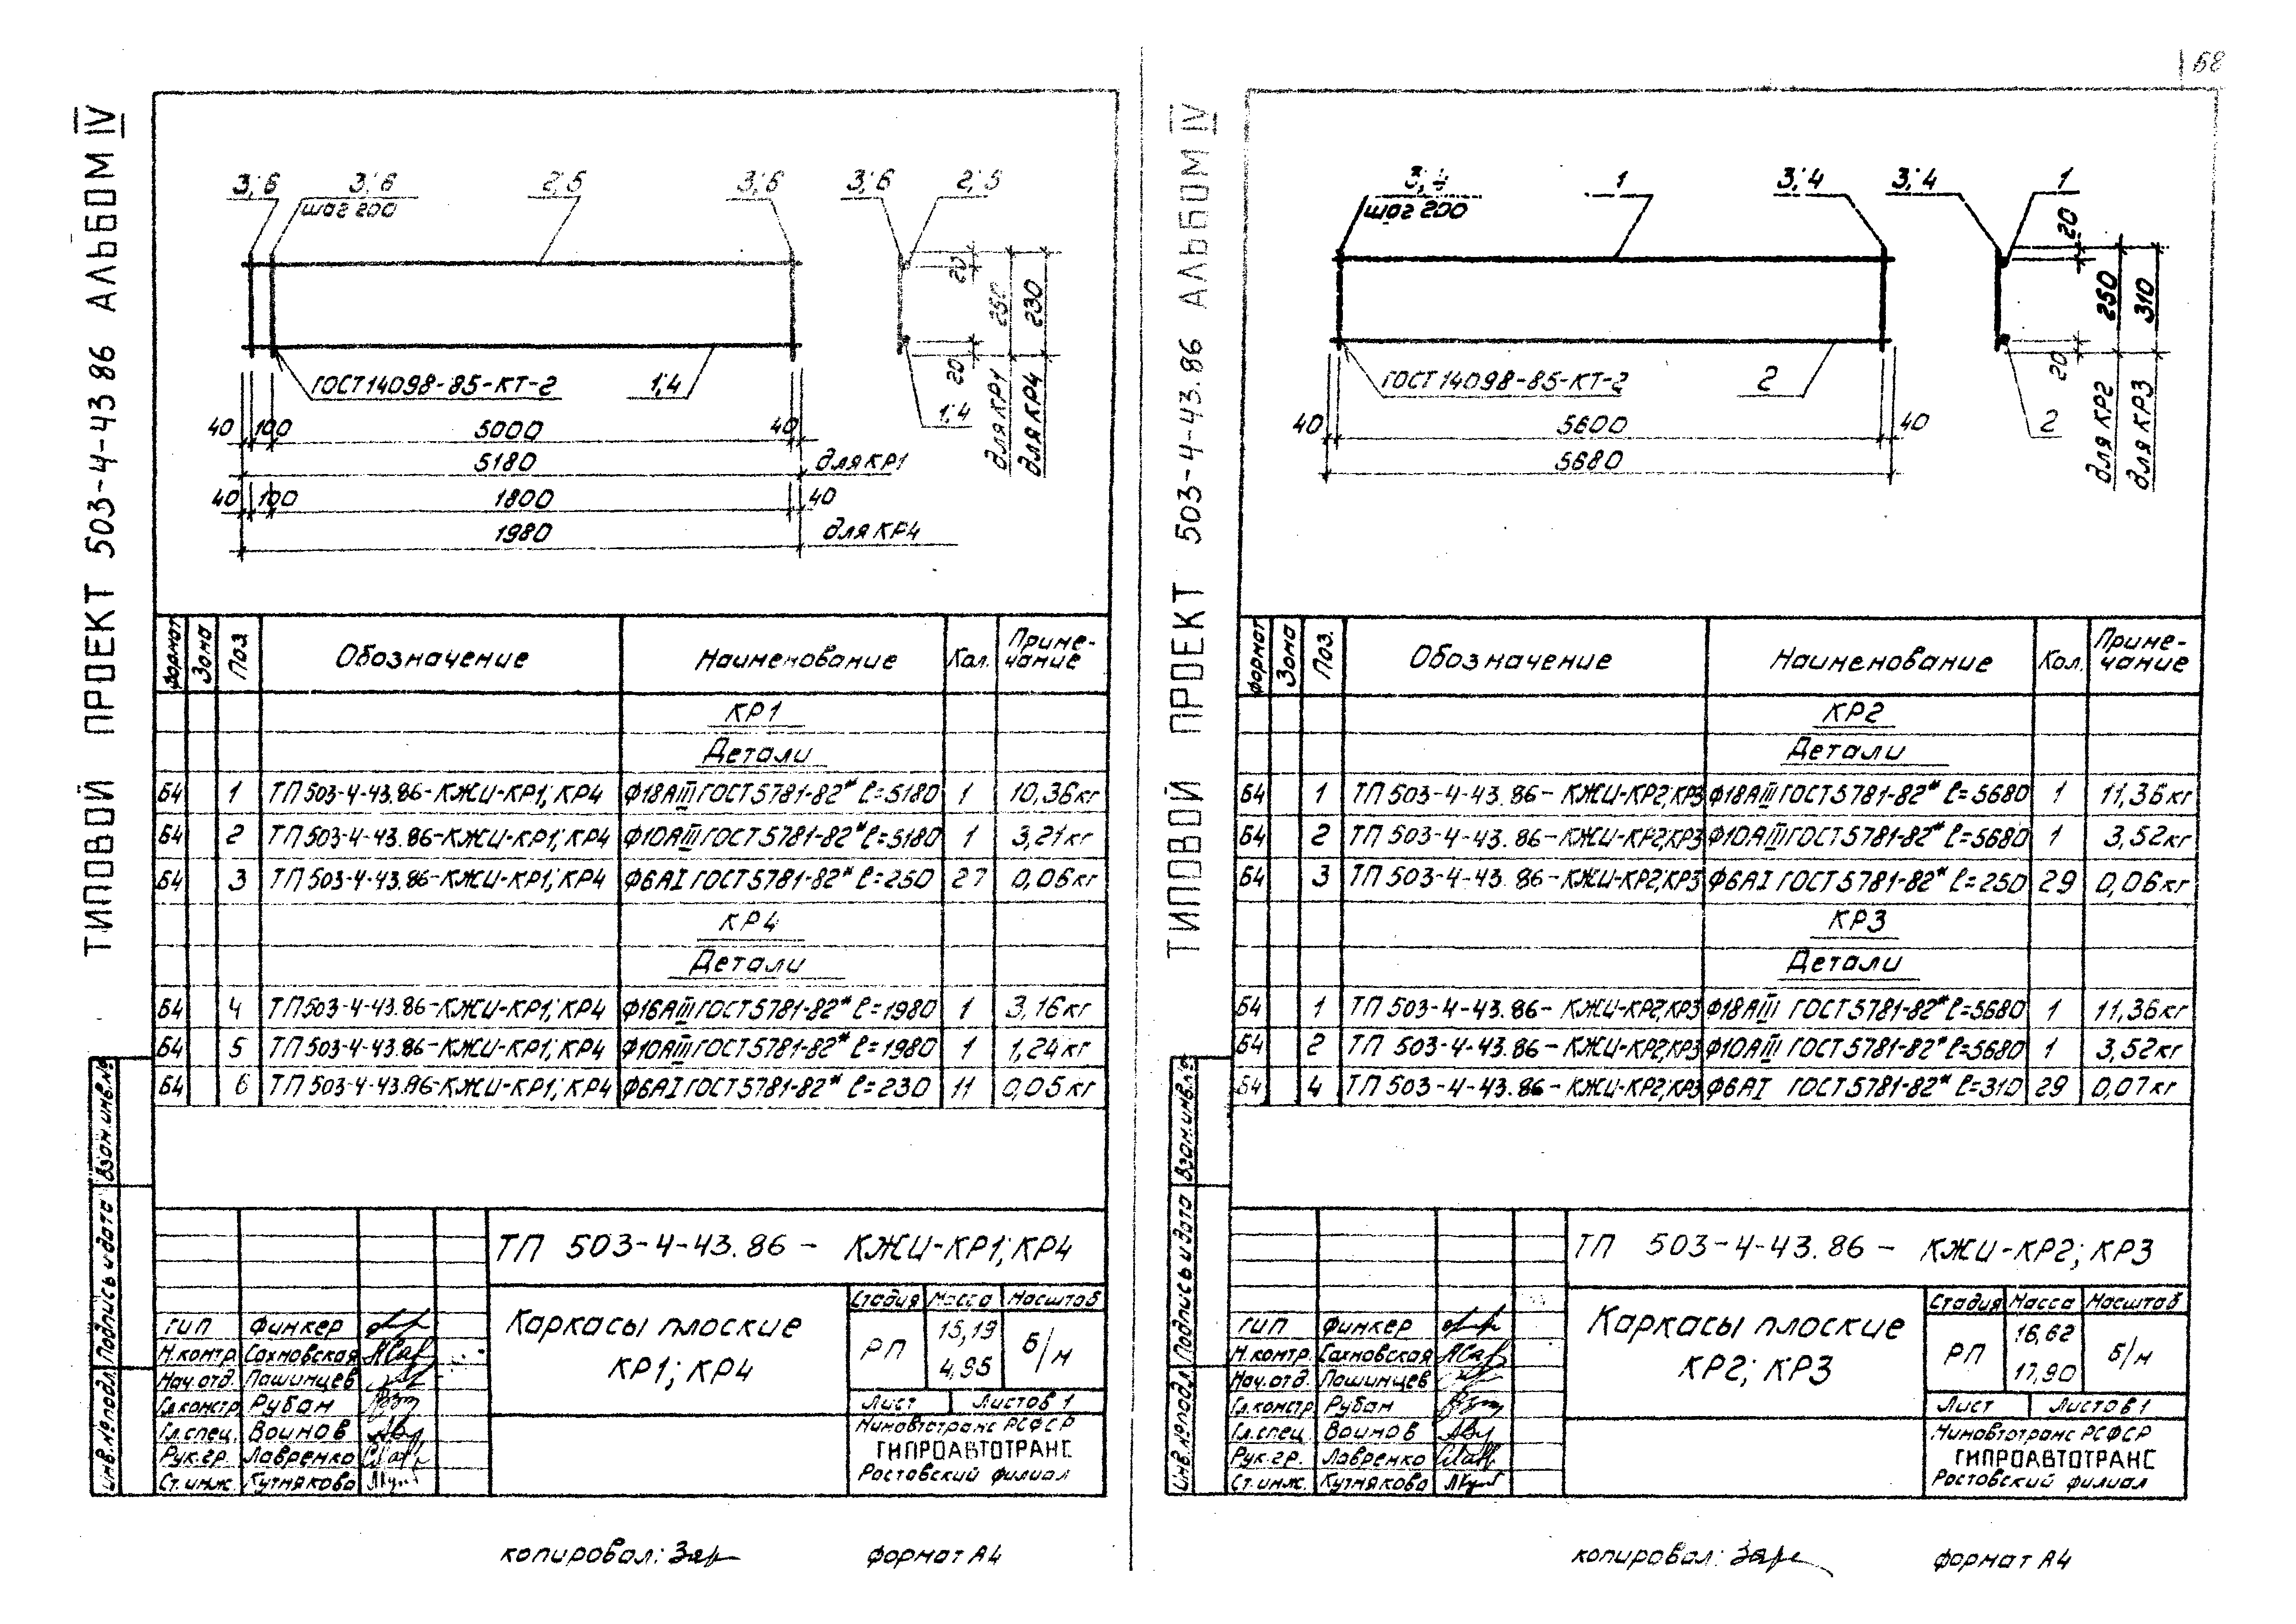 68
ТИПОВОЙ ПРОЕКТ 503-4-43 86 АЛЬБОМ IV
3; 6
3; 6
шаг 200
2; 5
3; 6
3; 6
2; 5
ГОСТ 14098-85-КТ-2
1; 4
1; 4
20
20
250
230
для КР1
для КР4
40 100 5000 40
5180 для КР1
40 100 1800 40
1980 для КР4
Формат Зона Поз. Обозначение Наименование Кол. Примечание
КР1
Детали
Б4 1 ТП 503-4-43.86-КЖИ-КР1; КР4 Ф18АIII ГОСТ 5781-82* ℓ=5180 1 10,36кг
Б4 2 ТП 503-4-43.86-КЖИ-КР1; КР4 Ф10АIII ГОСТ 5781-82* ℓ=5180 1 3,21кг
Б4 3 ТП 503-4-43.86-КЖИ-КР1; КР4 Ф6АI ГОСТ 5781-82* ℓ=250 27 0,06кг
КР4
Детали
Б4 4 ТП 503-4-43.86-КЖИ-КР1; КР4 Ф16АIII ГОСТ 5781-82* ℓ=1980 1 3,16кг
Б4 5 ТП 503-4-43.86-КЖИ-КР1; КР4 Ф10АIII ГОСТ 5781-82* ℓ=1980 1 1,24кг
Б4 6 ТП 503-4-43.86-КЖИ-КР1; КР4 Ф6АI ГОСТ 5781-82* ℓ=230 11 0,05кг
Инв.№подл. Подпись и дата Взам.инв.№
ТП 503-4-43.86 - КЖИ-КР1; КР4
Каркасы плоские
КР1; КР4
Стадия Масса Масштаб
РП 15,19 4,95 б/м
Лист Листов 1
Минавтотранс РСФСР
ГИПРОАВТОТРАНС
Ростовский филиал
ГИП Финкер
Н.контр. Сахновская
Нач.отд. Пашинцев
Гл.констр. Рубан
Гл.спец. Воинов
Рук.гр. Лавренко
Ст.инж. Кутнякова
копировал: формат А4
ТИПОВОЙ ПРОЕКТ 503-4-43.86 АЛЬБОМ IV
3; 4
шаг 200
1
3; 4
3; 4
1
ГОСТ 14098-85-КТ-2
2
2
20
20
250
310
для КР2
для КР3
40 5600 40
5680
Формат Зона Поз. Обозначение Наименование Кол. Примечание
КР2
Детали
Б4 1 ТП 503-4-43.86-КЖИ-КР2;КР3 Ф18АIII ГОСТ 5781-82* ℓ=5680 1 11,36кг
Б4 2 ТП 503-4-43.86-КЖИ-КР2;КР3 Ф10АIII ГОСТ 5781-82* ℓ=5680 1 3,52кг
Б4 3 ТП 503-4-43.86-КЖИ-КР2;КР3 Ф6АI ГОСТ 5781-82* ℓ=250 29 0,06кг
КР3
Детали
Б4 1 ТП 503-4-43.86-КЖИ-КР2;КР3 Ф18АIII ГОСТ 5781-82* ℓ=5680 1 11,36кг
Б4 2 ТП 503-4-43.86-КЖИ-КР2;КР3 Ф10АIII ГОСТ 5781-82* ℓ=5680 1 3,52кг
Б4 4 ТП 503-4-43.86-КЖИ-КР2;КР3 Ф6АI ГОСТ 5781-82* ℓ=310 29 0,07кг
Инв.№подл. Подпись и дата Взам.инв.№
ТП 503-4-43.86 - КЖИ-КР2; КР3
Каркасы плоские
КР2; КР3
Стадия Масса Масштаб
РП 16,62 17,90 б/м
Лист Листов 1
Минавтотранс РСФСР
ГИПРОАВТОТРАНС
Ростовский филиал
ГИП Финкер
Н.контр. Сахновская
Нач.отд. Пашинцев
Гл.констр. Рубан
Гл.спец. Воинов
Рук.гр. Лавренко
Ст.инж. Кутнякова
копировал: формат А4